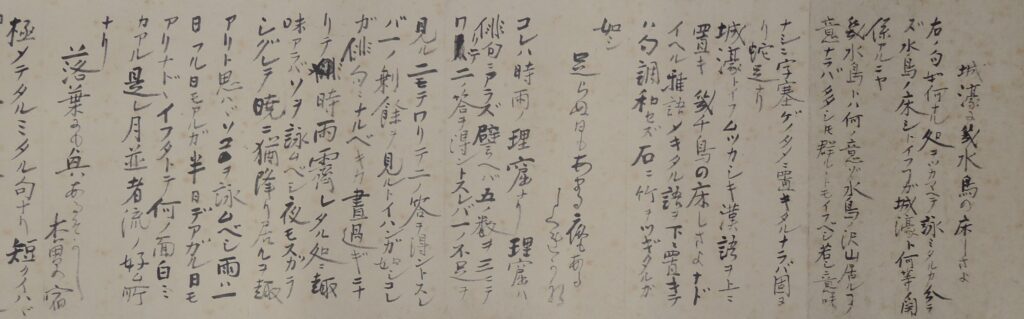 城濠に幾水鳥の床しさよ
右ノ句如何ナル処ヲツカマヘテ詠ミタルカ分ラ
ズ水鳥ノ床シトイフガ城濠ト何等関
係アルニヤ
幾水鳥トハ何ノ意ゾ水鳥ノ沢山居ルコノ
意ナラバ多シモ群レシトモイフベシ若シ意味
ナシニ字塞ゲノタメニ置キタルナラバ固ヨ
リ蛇足ナリ
城濠トイフムツカシキ漢語ヲ上ニ
置キ幾千鳥の床しさよナド
イヘル雅語メキタル語ヲ下ニ置キテ
ハ句調和セズ石ニ竹ヲツギタルガ
如シ
足らぬ日もあるに夜る
しぐれかな
コレハ時雨ノ理窟ナリ理窟ハ
俳句ニアラズ譬ヘバ五ノ数ヲ三ニテ
ワリテ二ノ答ヲ得ントスレバ一不足ヲ
見ル二モテワリテ二ノ答ヲ得ントスレ
バ一ノ剰餘ヲ見ルトイハンガ如シコレ
ガ俳句ニナルベキカ晝過ギニテ
リテ時雨霽レタル処ニ趣
味アラバソヲ詠ムベシ夜モスガラ
シグレテ暁ニ猶降リ居ルコ趣
アリト思ハヾソコヲ詠ムベシ雨ハ一
日フル日モアレガ半日デアガル日モ
アリナドヽイフタトテ何ノ面白ミ
カアル是レ月並者流ノ好ム所
ナリ
落葉にも真ある
杢星の宿
極メテタルミタル句ナリ短クイハヾ